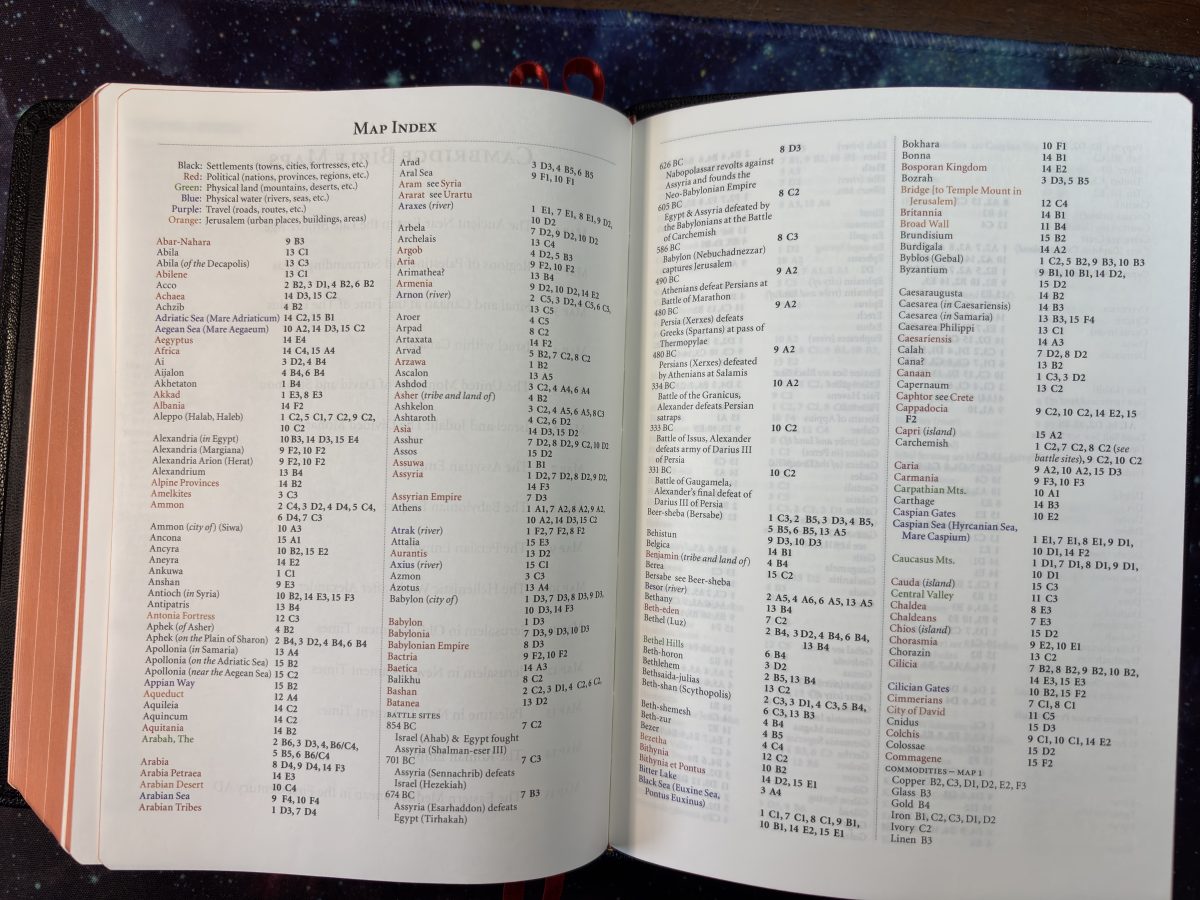 MAP INDEX
Black: Settlements (towns, cities, fortresses, etc.)
Red: Political (nations, provinces, regions, etc.)
Green: Physical land (mountains, deserts, etc.)
Blue: Physical water (rivers, seas, etc.)
Purple: Travel (roads, routes, etc.)
Orange: Jerusalem (urban places, buildings, areas)
Abar-Nahara 9 B3
Abila 13 C1
Abila (of the Decapolis) 13 C3
Abilene 13 C1
Acco 2 B2, 3 D1, 4 B2, 6 B2
Achaea 14 D3, 15 C2
Achzib 4 B2
Adriatic Sea (Mare Adriaticum) 14 C2, 15 B1
Aegean Sea (Mare Aegaeum) 10 A2, 14 D3, 15 C2
Aegyptus 14 E4
Africa 14 C4, 15 A4
Ai 3 D2, 4 B4
Aijalon 4 B4, 6 B4
Akhetaton 1 B4
Akkad 1 E3, 8 E3
Albania 14 F2
Aleppo (Halab, Haleb) 1 C2, 5 C1, 7 C2, 9 C2,
10 C2
Alexandria (in Egypt) 10 B3, 14 D3, 15 E4
Alexandria (Margiana) 9 F2, 10 F2
Alexandria Arion (Herat) 9 F2, 10 F2
Alexandrium 13 B4
Alpine Provinces 14 B2
Amelkites 3 C3
Ammon 2 C4, 3 D2, 4 D4, 5 C4,
6 D4, 7 C3
Ammon (city of) (Siwa) 10 A3
Ancona 15 A1
Ancyra 10 B2, 15 E2
Aneyra 14 E2
Ankuwa 1 C1
Anshan 9 E3
Antioch (in Syria) 10 B2, 14 E3, 15 F3
Antipatris 13 B4
Antonia Fortress 12 C3
Aphek (of Asher) 4 B2
Aphek (on the Plain of Sharon) 2 B4, 3 D2, 4 B4, 6 B4
Apollonia (in Samaria) 13 A4
Apollonia (on the Adriatic Sea) 15 B2
Apollonia (near the Aegean Sea) 15 C2
Appian Way 15 B2
Aqueduct 12 A4
Aquileia 14 C2
Aquincum 14 C2
Aquitania 14 B2
Arabah, The 2 B6, 3 D3, 4 B6/C4,
5 B5, 6 B6/C4
Arabia 8 D4, 9 D4, 14 F3
Arabia Petraea 14 E3
Arabian Desert 10 C4
Arabian Sea 9 F4, 10 F4
Arabian Tribes 1 D3, 7 D4
Arad 3 D3, 4 B5, 6 B5
Aral Sea 9 F1, 10 F1
Aram see Syria
Ararat see Urartu
Araxes (river) 1 E1, 7 E1, 8 E1, 9 D2,
10 D2
Arbela 7 D2, 9 D2, 10 D2
Archelais 13 C4
Argob 4 D2, 5 B3
Aria 9 F2, 10 F2
Arimathea? 13 B4
Armenia 9 D2, 10 D2, 14 E2
Arnon (river) 2 C5, 3 D2, 4 C5, 6 C3,
13 C5
Aroer 4 C5
Arpad 8 C2
Artaxata 14 F2
Arvad 5 B2, 7 C2, 8 C2
Arzawa 1 B2
Ascalon 13 A5
Ashdod 3 C2, 4 A4, 6 A4
Asher (tribe and land of) 4 B2
Ashkelon 3 C2, 4 A5, 6 A5, 8 C3
Ashtaroth 4 C2, 6 D2
Asia 14 D3, 15 D2
Asshur 7 D2, 8 D2, 9 C2, 10 D2
Assos 15 D2
Assuwa 1 B1
Assyria 1 D2, 7 D2, 8 D2, 9 D2,
14 F3
Assyrian Empire 7 D3
Athens 1 A1, 7 A2, 8 A2, 9 A2,
10 A2, 14 D3, 15 C2
Atrak (river) 1 F2, 7 F2, 8 F2
Attalia 15 E3
Aurantis 13 D2
Axius (river) 15 C1
Azmon 3 C3
Azotus 13 A4
Babylon (city of) 1 D3, 7 D3, 8 D3, 9 D3,
10 D3, 14 F3
Babylon 1 D3
Babylonia 7 D3, 9 D3, 10 D3
Babylonian Empire 8 D3
Bactria 9 F2, 10 F2
Baetica 14 A3
Balikhu 8 C2
Bashan 2 C2, 3 D1, 4 C2, 6 C2
Batanea 13 D2
BATTLE SITES
854 BC 7 C2
Israel (Ahab) & Egypt fought
Assyria (Shalman-eser III)
701 BC 7 C3
Assyria (Sennachrib) defeats
Israel (Hezekiah)
674 BC 7 B3
Assyria (Esarhaddon) defeats
Egypt (Tirhakah)
626 BC 8 D3
Nabopolassar revolts against
Assyria and founds the
Neo-Babylonian Empire
605 BC 8 C2
Egypt & Assyria defeated by
the Babylonians at the Battle
of Carchemish
586 BC 8 C3
Babylon (Nebuchadnezzar)
captures Jerusalem
490 BC 9 A2
Athenians defeat Persians at
Battle of Marathon
480 BC 9 A2
Persia (Xerxes) defeats
Greeks (Spartans) at pass of
Thermopylae
480 BC 9 A2
Persians (Xerxes) defeated
by Athenians at Salamis
334 BC 10 A2
Battle of the Granicus,
Alexander defeats Persian
satraps
333 BC 10 C2
Battle of Issus, Alexander
defeats army of Darius III
of Persia
331 BC 10 C2
Battle of Gaugamela,
Alexander's final defeat of
Darius III of Persia
Beer-sheba (Bersabe) 1 C3, 2 B5, 3 D3, 4 B5,
5 B5, 6 B5, 13 A5
Behistun 9 D3, 10 D3
Belgica 14 B1
Benjamin (tribe and land of) 4 B4
Berea 15 C2
Bersabe see Beer-sheba
Besor (river) 2 A5, 4 A6, 6 A5, 13 A5
Bethany 13 B4
Beth-eden 7 C2
Bethel (Luz) 2 B4, 3 D2, 4 B4, 6 B4,
13 B4
Bethel Hills 6 B4
Beth-horon 3 D2
Bethlehem 2 B5, 13 B4
Bethsaida-julias 13 C2
Beth-shan (Scythopolis) 2 C3, 3 D1, 4 C3, 5 B4,
6 C3, 13 B3
Beth-shemesh 4 B4
Beth-zur 4 B5
Bezer 4 C4
Bezetha 12 C2
Bithynia 10 B2
Bithynia et Pontus 14 D2, 15 E1
Bitter Lake 3 A4
Black Sea (Euxine Sea,
Pontus Euxinus) 1 C1, 7 C1, 8 C1, 9 B1,
10 B1, 14 E2, 15 E1
Bokhara 10 F1
Bonna 14 B1
Bosporan Kingdom 14 E2
Bozrah 3 D3, 5 B5
Bridge [to Temple Mount in
Jerusalem] 12 C4
Britannia 14 B1
Broad Wall 11 B4
Brundisium 15 B2
Burdigala 14 A2
Byblos (Gebal) 1 C2, 5 B2, 9 B3, 10 B3
Byzantium 9 B1, 10 B1, 14 D2,
15 D2
Caesaraugusta 14 B2
Caesarea (in Caesariensis) 14 B3
Caesarea (in Samaria) 13 B3, 15 F4
Caesarea Philippi 13 C1
Caesariensis 14 A3
Calah 7 D2, 8 D2
Cana? 13 B2
Canaan 1 C3, 3 D2
Capernaum 13 C2
Caphtor see Crete
Cappadocia 9 C2, 10 C2, 14 E2, 15
F2
Capri (island) 15 A2
Carchemish 1 C2, 7 C2, 8 C2 (see
battle sites), 9 C2, 10 C2
Caria 9 A2, 10 A2, 15 D3
Carmania 9 F3, 10 F3
Carpathian Mts. 10 A1
Carthage 14 B3
Caspian Gates 10 E2
Caspian Sea (Hyrcanian Sea,
Mare Caspium) 1 E1, 7 E1, 8 E1, 9 D1,
10 D1, 14 F2
Caucasus Mts. 1 D1, 7 D1, 8 D1, 9 D1,
10 D1
Cauda (island) 15 C3
Central Valley 11 C3
Chaldea 8 E3
Chaldeans 7 E3
Chios (island) 15 D2
Chorasmia 9 E2, 10 E1
Chorazin 13 C2
Cilicia 7 B2, 8 B2, 9 B2, 10 B2,
14 E3, 15 E3
Cilician Gates 10 B2, 15 F2
Cimmerians 7 C1, 8 C1
City of David 11 C5
Cnidus 15 D3
Colchis 9 C1, 10 C1, 14 E2
Colossae 15 D2
Commagene 15 F2
COMMODITIES – MAP 1
Copper B2, C3, D1, D2, E2, F3
Glass B3
Gold B4
Iron B1, C2, C3, D1, D2
Ivory C2
Linen B3